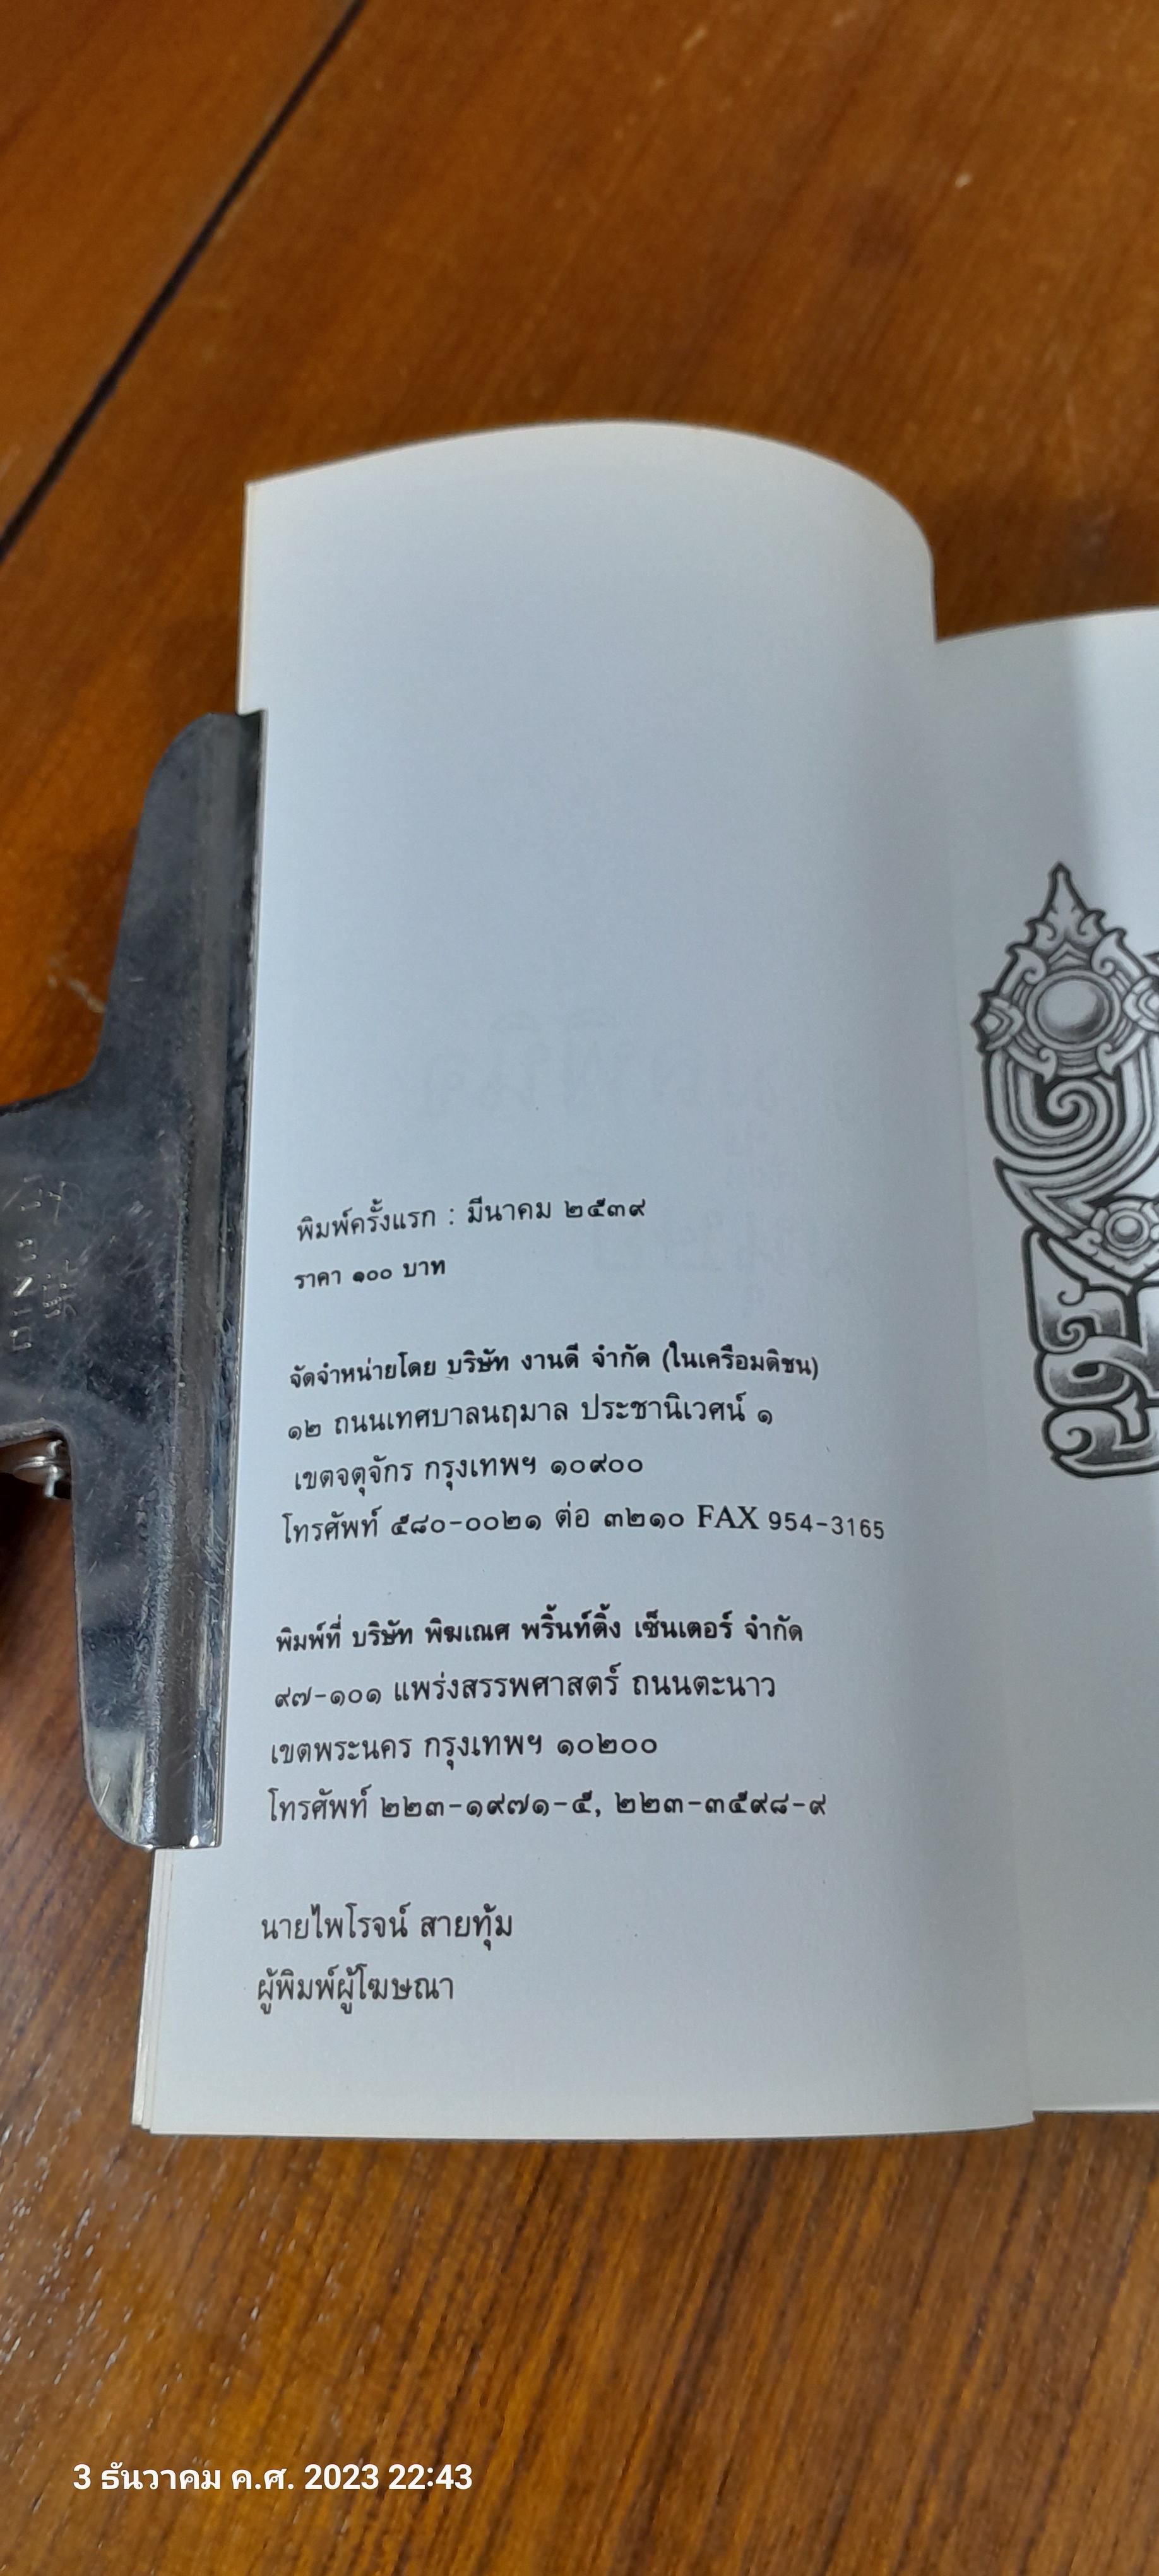 พิมพ์ครั้งแรก : มีนาคม ๒๕๓๙
ราคา ๑๐๐ บาท
จัดจำหน่ายโดย บริษัท งานดี จำกัด (ในเครือมติชน)
๑๒ ถนนเทศบาลนฤมาล ประชานิเวศน์ ๑
เขตจตุจักร กรุงเทพฯ ๑๐๙๐๐
โทรศัพท์ ๕๘๐-๐๐๒๑ ต่อ ๓๒๑๐ FAX 954-3165
พิมพ์ที่ บริษัท พิฆเณศ พริ้นท์ติ้ง เซ็นเตอร์ จำกัด
๙๗-๑๐๑ แพร่งสรรพศาสตร์ ถนนตะนาว
เขตพระนคร กรุงเทพฯ ๑๐๒๐๐
โทรศัพท์ ๒๒๓-๑๙๗๑-๕, ๒๒๓-๓๕๙๘-๙
นายไพโรจน์ สายทุ้ม
ผู้พิมพ์ผู้โฆษณา
3 ธันวาคม ค.ศ. 2023 22:43